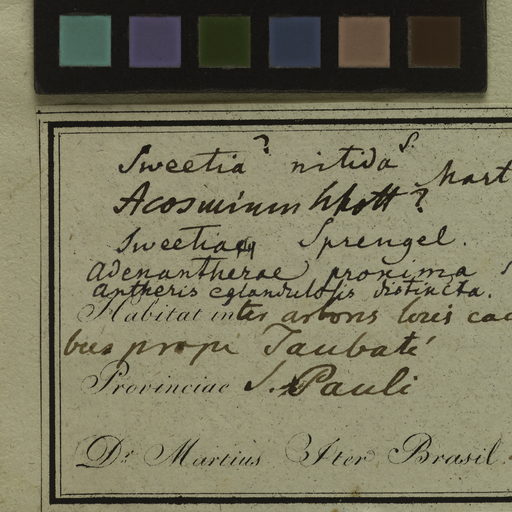 Sweetia? nitida S. Mart
Acosmium Schott?
Sweetia Sprengel.
Adenantherae proxima S
antheris eglandulosis distincta.
Habitat inter
bus prope Taubaté
Provinciae S. Pauli
Dr Martius Iter Brasil.